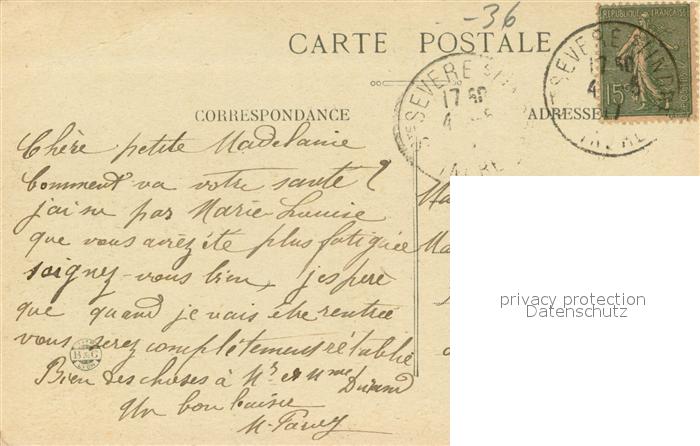 -36
CARTE POSTALE
REPUBLIQUE FRANÇAISE
15c
STE SEVERE S/INDRE
17 30
4 -5
INDRE
STE SEVERE S/INDRE
17 30
4 -5
17
INDRE
CORRESPONDANCE
ADRESSE
Chère petite Madelaine
Comment va votre santé ?
j'ai su par Marie-Louise
que vous aviez été plus fatiguée
soignez-vous bien, j'espère
que quand je vais être rentrée
vous serez complètement rétablie
B & G
LYON
Bien des choses à Mr et Mme Durand
Un bon baiser
Ma
privacy protection
Datenschutz